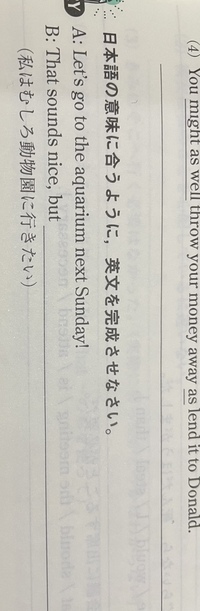 (4) You might as well throw your money away as lend it to Donald.
日本語の意味に合うように，英文を完成させなさい。
A: Let's go to the aquarium next Sunday!
B: That sounds nice, but
(私はむしろ動物園に行きたい)